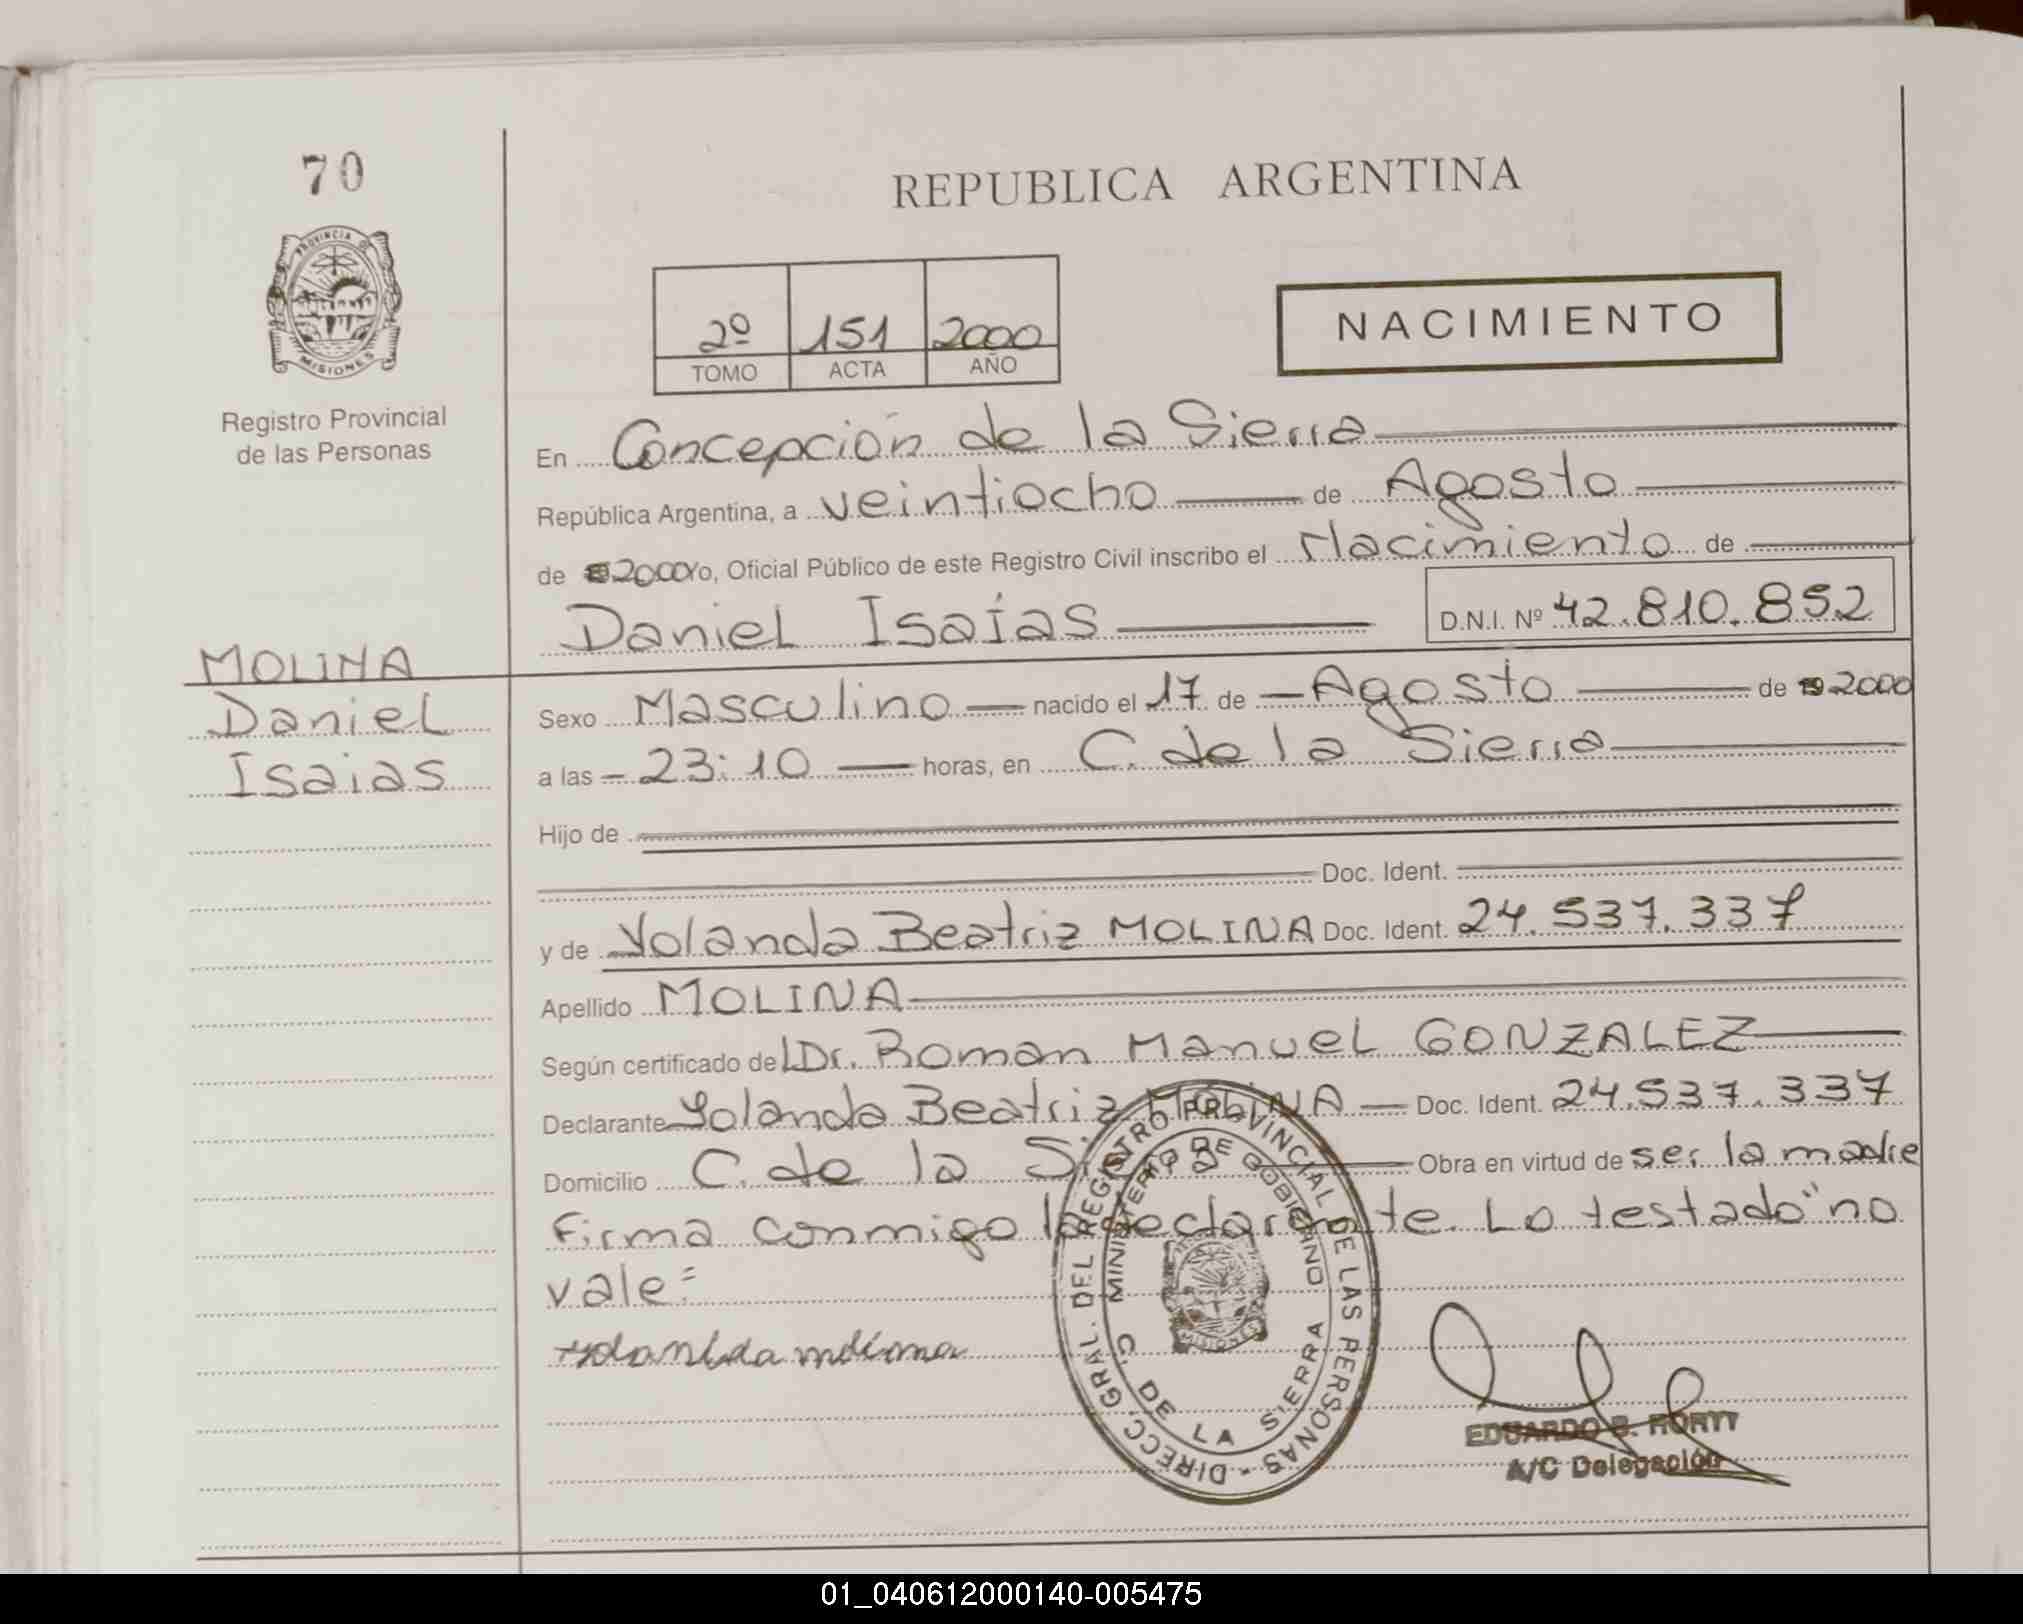 70
REPUBLICA ARGENTINA
PROVINCIA DE MISIONES
2º 151 2000
TOMO ACTA AÑO
NACIMIENTO
Registro Provincial
de las Personas
En Concepción de la Sierra
República Argentina, a veintiocho de Agosto
de 2000 Yo, Oficial Público de este Registro Civil inscribo el Nacimiento de
Daniel Isaías D.N.I. Nº 42.810.852
MOLINA
Daniel
Isaias
Sexo Masculino nacido el 17 de Agosto de 19 2000
a las 23:10 horas, en C. de la Sierra
Hijo de
Doc. Ident.
y de Yolanda Beatriz MOLINA Doc. Ident. 24.537.337
Apellido MOLINA
Según certificado del Dr. Roman Manuel GONZALEZ
Declarante Yolanda Beatriz MOLINA Doc. Ident. 24.537.337
Domicilio C. de la Sierra Obra en virtud de ser la madre
Firma conmigo la declarante. Lo testado "no
vale=
DIRECC. GRAL. DEL REGISTRO PROVINCIAL DE LAS PERSONAS -
MINISTERIO DE GOBIERNO
C. DE LA SIERRA
MISIONES
EDUARDO
A/C Delegación
01_040612000140-005475